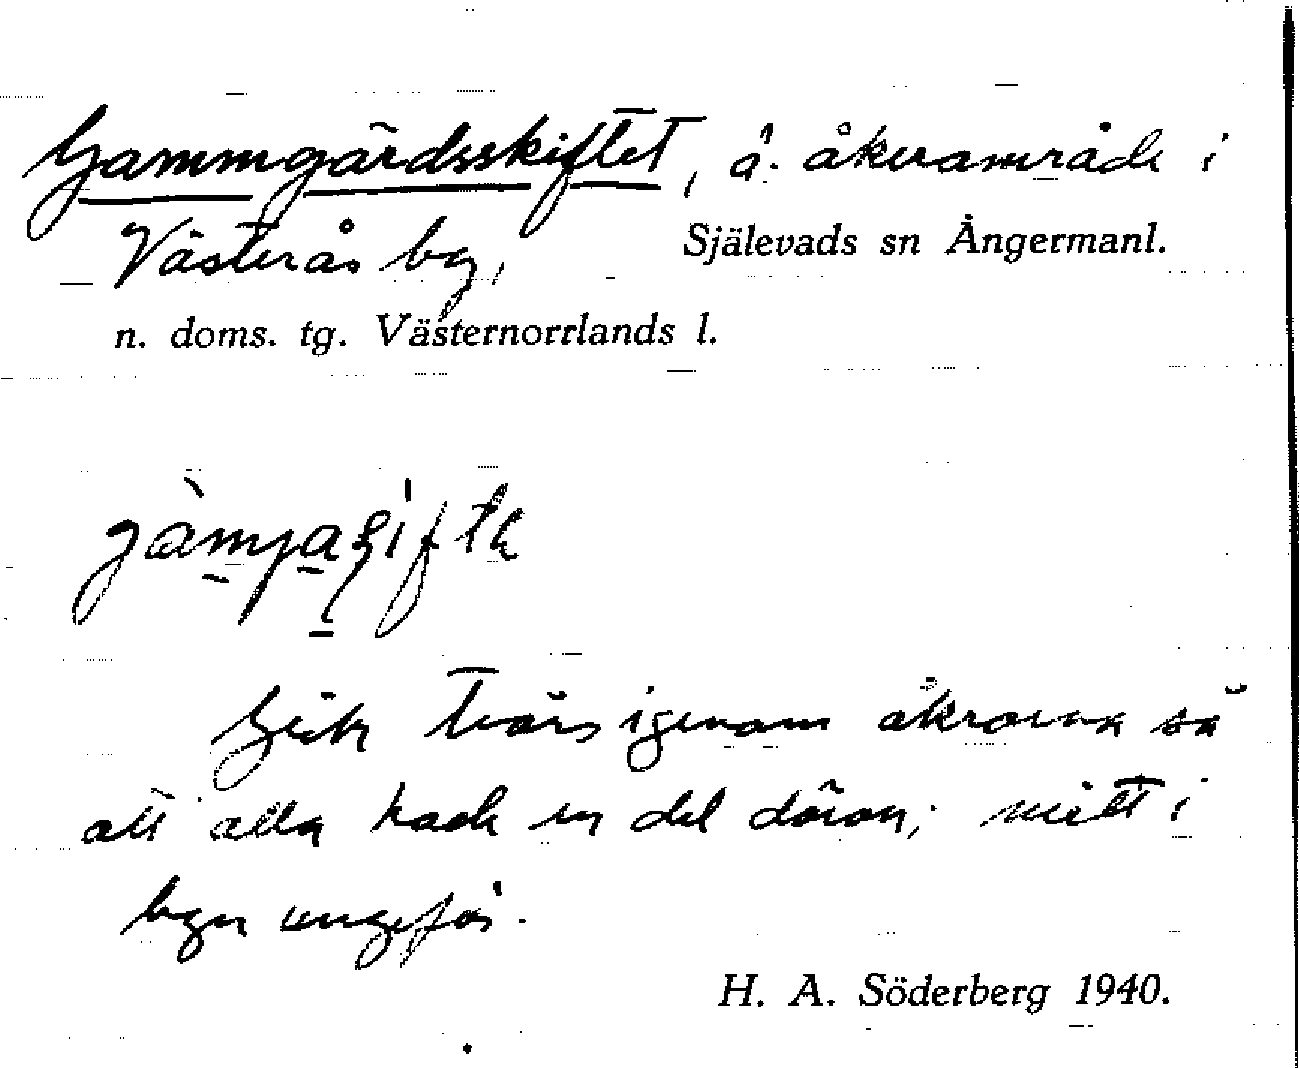 Gammgärdsskiftet, å. åkerområde i
Västerås by, Själevads sn Ångermanl.
n. doms. tg. Västernorrlands l.
Gick tvärs igenom åkrarna så
att alla hade en del därav; mitt i
byn ungefär.
H. A. Söderberg 1940.